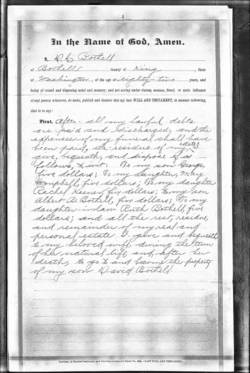 In the Name of God, Amen.
I, D. C. Bothell
of Bothell County of King State
Washington, of the age of eighty two years, and
being of sound and disposing mind and memory, and not acting under duress, menace, fraud, or undue influence
of any person whatever, do make, publish and declare this my last WILL AND TESTAMENT, in manner following,
that is to say:
First, After all my lawful debts
are paid and discharged, and the
expenses of my funeral shall have
been paid, the residue of my estate I
give, bequeath and dispose of as
follows, to wit: To my son George
five dollars; To my daughter, Mary
five dollars; To my daughter
Rachel five dollars; To my son
Albert Bothell, five dollars; To my
daughter-in-law Ruth Bothell, five
dollars; and all the rest, residue
and remainder of my real and
personal estate I give and bequeath
to my beloved wife during the term
of her natural life and after her
death, to go to and become the property
of my son David Bothell